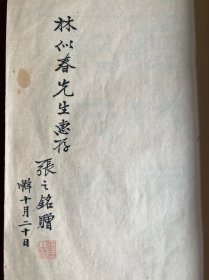 林似春先生惠存
張之銘贈
十月二十日